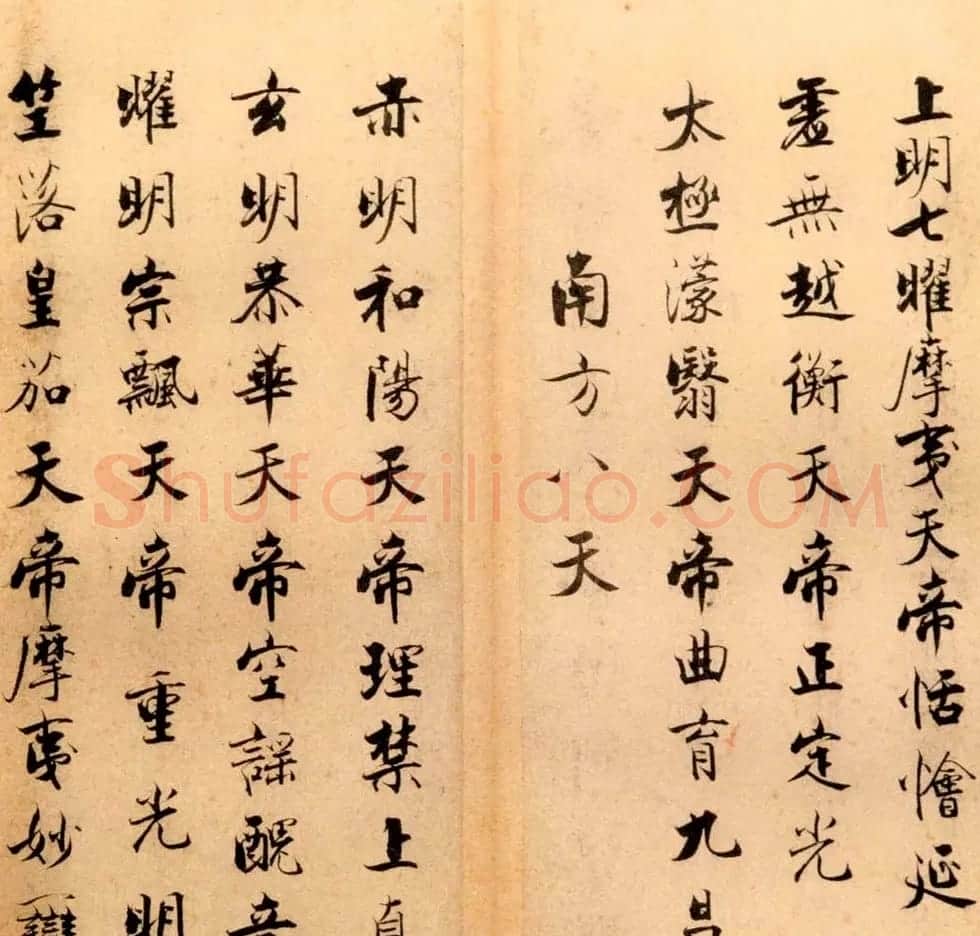 上明七曜摩夷天帝恬懀延
虛無越衡天帝正定光
太極濛翳天帝曲育九昌
南方八天
赤明和陽天帝理禁上真
玄明恭華天帝空謠醜音
燿明宗飄天帝重光明
竺落皇茄天帝摩夷妙
Shufaziliao.COM